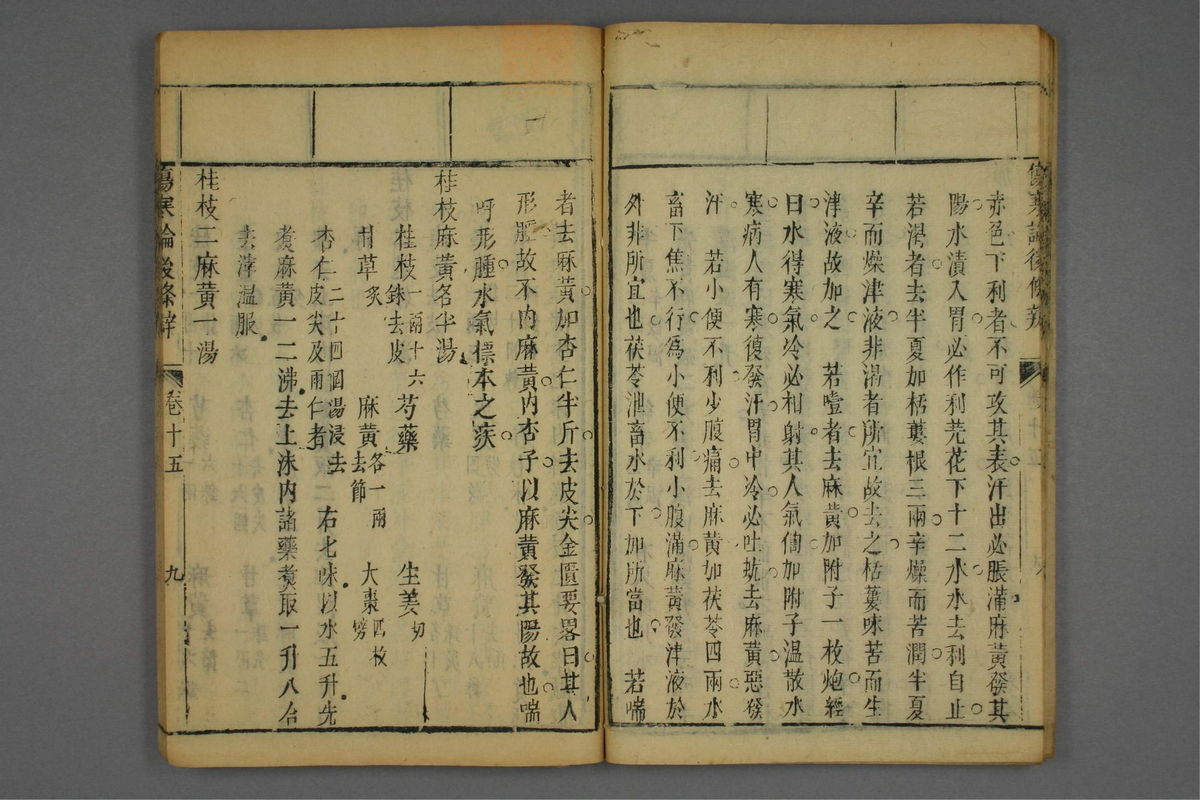 赤色下利者不可攻其表汗出必脹滿麻黃發其
陽水漬入胃必作利芫花下十二水水去利自止
若渴者去半夏加栝蔞根三兩辛燥而苦潤半夏
辛而燥津液非渴者所宜故去之栝蔞味苦而生
津液故加之　若噎者去麻黃加附子一枚炮經
曰水得寒氣冷必相射其人氣𩚬加附子溫散水
寒病人有寒復發汗胃中冷必吐蚘去麻黃惡發
汗　若小便不利少腹痛去麻黃加茯苓四兩水
畜下焦不行為小便不利小腹滿麻黃發津液於
外非所宜也茯苓泄畜水於下加所當也　若喘
者去麻黃加杏仁半斤去皮尖金匱要畧曰其人
形腫故不內麻黃內杏子以麻黃發其陽故也喘
呼形腫水氣標本之疾
桂枝麻黃各半湯
桂枝一兩十六銖去皮　芍藥　生姜切
甘草炙　麻黃各一兩去節　大棗四枚劈
杏仁二十四個湯浸去皮尖及兩仁者　右七味以水五升先
煮麻黃一二沸去上沫內諸藥煮取一升八合
去滓溫服
桂枝二麻黃一湯
傷寒論後條辨　卷十五　九